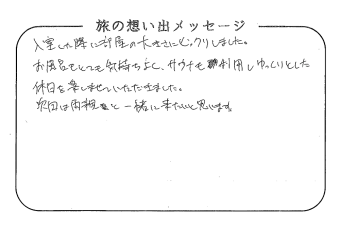 旅の想い出メッセージ
入室した際に部屋の大きさにビックリしました。
お風呂もとても気持ちよく、サウナも利用しゆっくりとした
休日を楽しませていただきました。
次回は両親と一緒に来たいと思います。